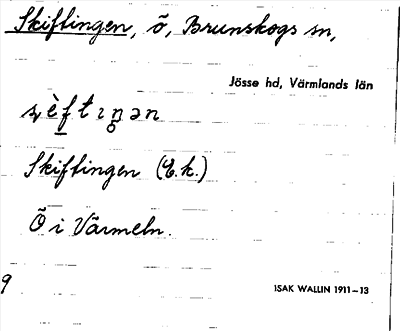 Skiftingen, ö, Brunskogs sn,
Jösse hd, Värmlands län
Skiftingen (E.k.)
Ö i Värmeln.
9
ISAK WALLIN 1911–13